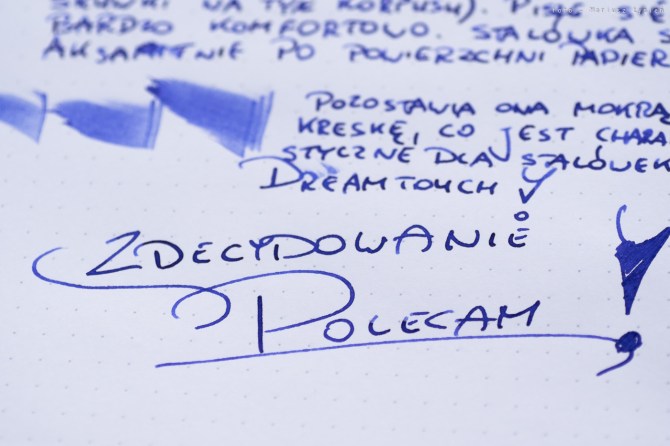 NA TYŁ KORPUSU). PISZE SIĘ
BARDZO KOMFORTOWO. STALÓWKA S
AKSAMITNIE PO POWIERZCHNI PAPIER
POZOSTAWIA ONA MOKRĄ
KRESKĘ, CO JEST CHARA
STYCZNE DLA STALÓWEK
DREAMTOUCH
ZDECYDOWANIE
POLECAM